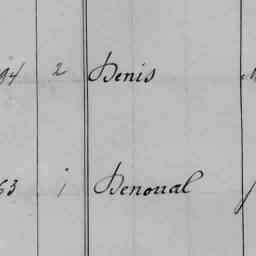 94 2 Denis
63 1 Denoual